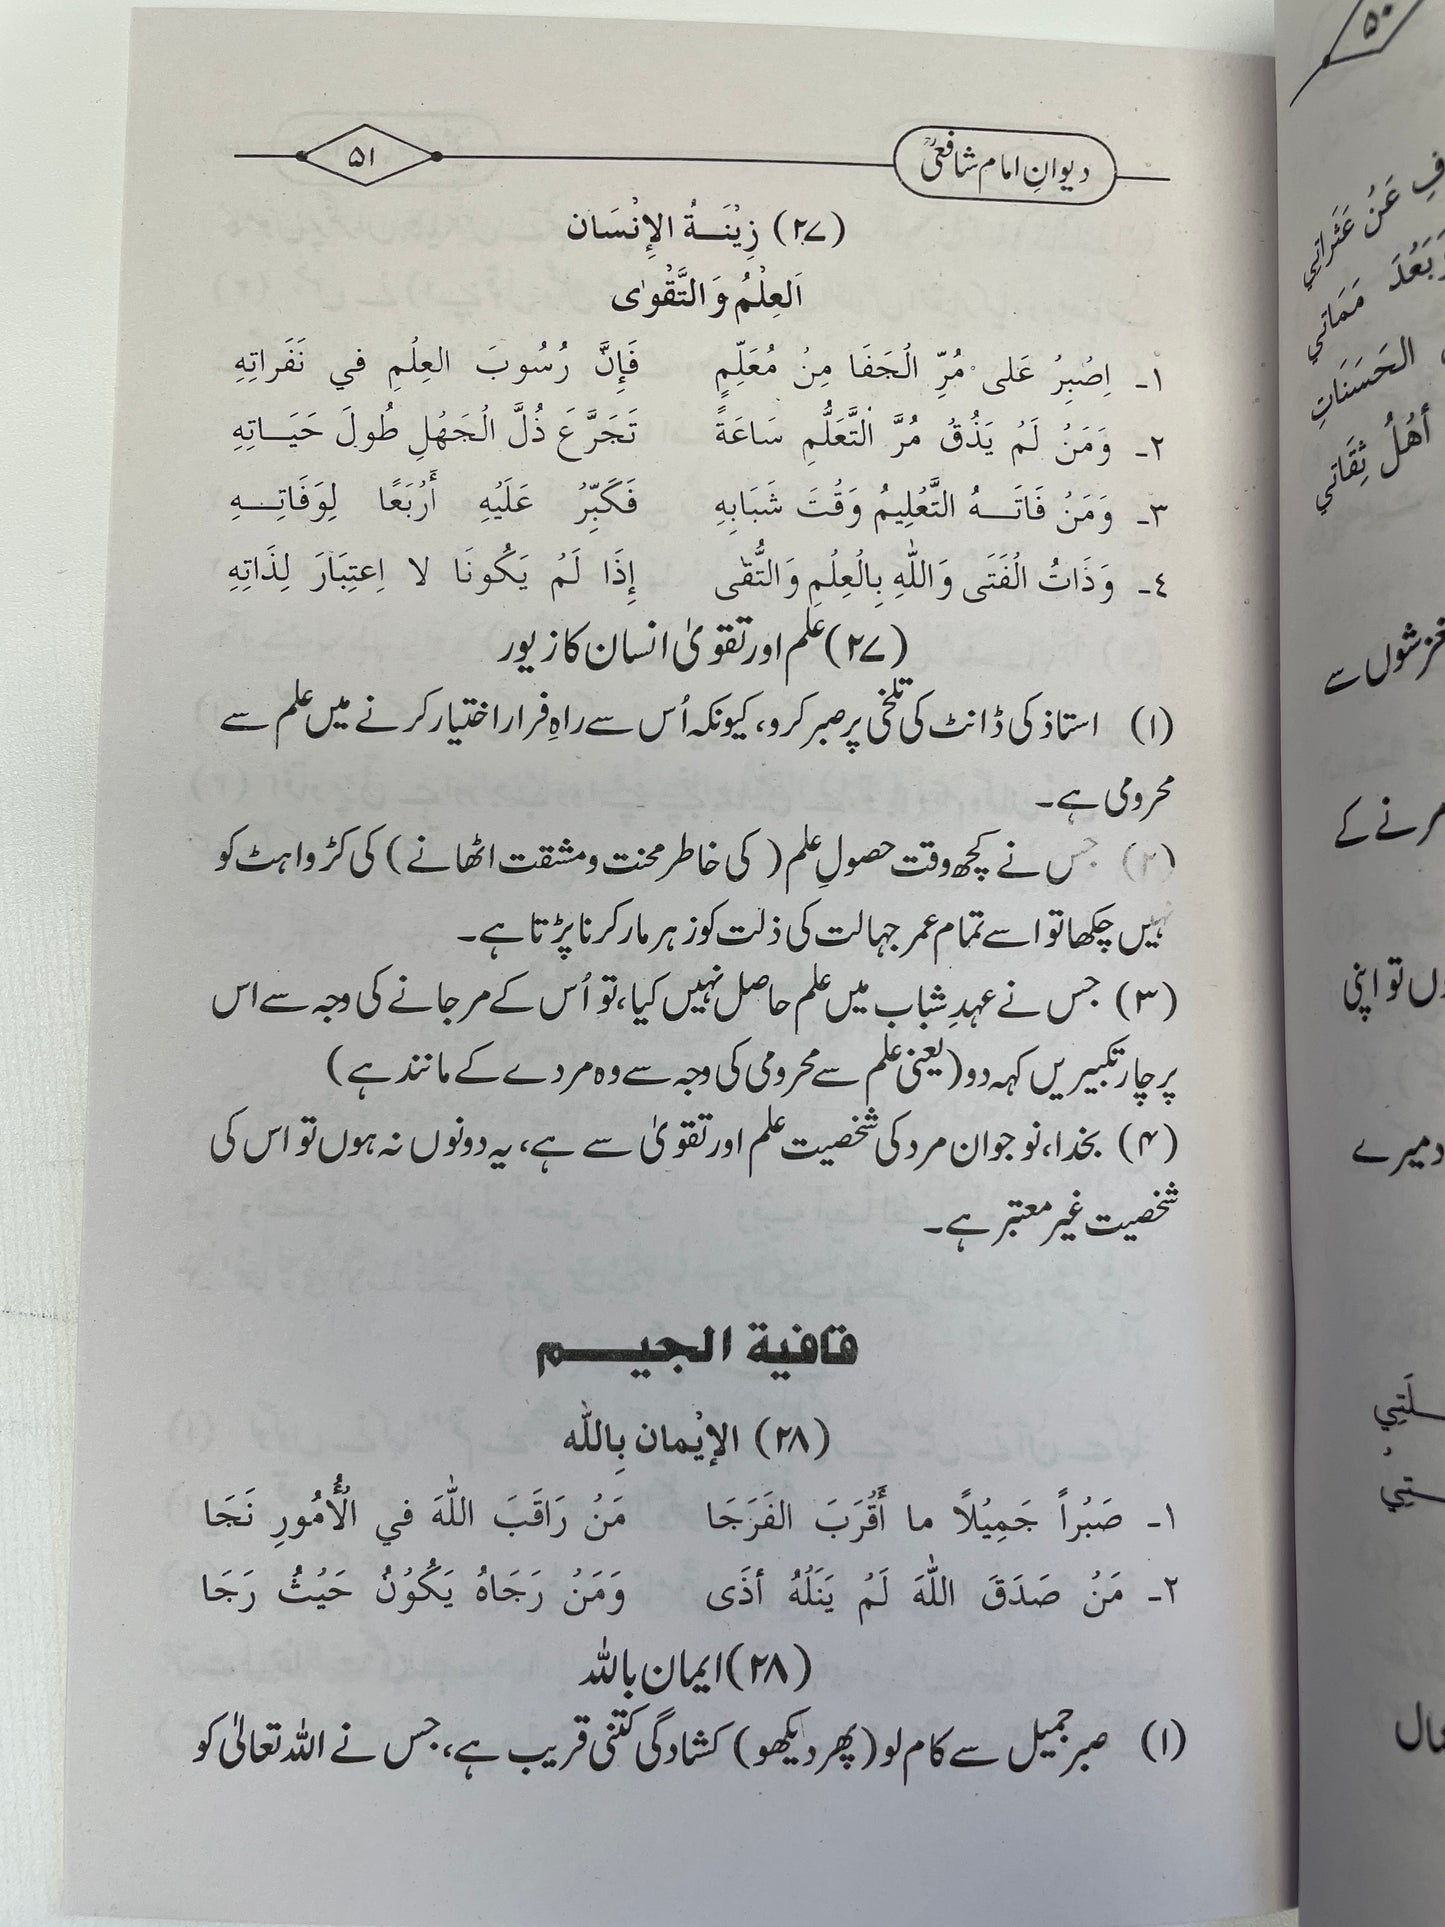 دیوانِ امام شافعیؒ
۵۱
(۲۷) زِيْنَةُ الإِنْسَان
اَلعِلْمُ وَالتَّقْوٰى
١ـ اِصْبِرْ عَلى مُرِّ الْجَفَا مِنْ مُعَلِّمٍ فَإِنَّ رُسُوبَ العِلْمِ في نَفَراتِهِ
٢ـ وَمَنْ لَمْ يَذُقْ مُرَّ التَّعَلُّمِ سَاعَةً تَجَرَّعَ ذُلَّ الْجَهْلِ طُولَ حَيَاتِهِ
٣ـ وَمَنْ فَاتَهُ التَّعْلِيمُ وَقْتَ شَبَابِهِ فَكَبِّرْ عَلَيْهِ أَرْبَعًا لِوَفَاتِهِ
٤ـ وَذَاتُ الْفَتَى وَاللّٰهِ بِالْعِلْمِ وَالتُّقٰى إِذَا لَمْ يَكُونَا لا اِعتِبَارَ لِذَاتِهِ
(۲۷) علم اور تقویٰ انسان کا زیور
(۱) استاذ کی ڈانٹ کی تلخی پر صبر کرو، کیونکہ اُس سے راہِ فرار اختیار کرنے میں علم سے
محرومی ہے۔
(۲) جس نے کچھ وقت حصولِ علم (کی خاطر محنت و مشقت اٹھانے) کی کڑواہٹ کو
نہیں چکھا تو اسے تمام عمر جہالت کی ذلت کو زہر مار کرنا پڑتا ہے۔
(۳) جس نے عہدِ شباب میں علم حاصل نہیں کیا، تو اُس کے مر جانے کی وجہ سے اس
پر چار تکبیریں کہہ دو (یعنی علم سے محرومی کی وجہ سے وہ مردے کے مانند ہے)
(۴) بخدا، نوجوان مرد کی شخصیت علم اور تقویٰ سے ہے، یہ دونوں نہ ہوں تو اس کی
شخصیت غیر معتبر ہے۔
قافية الجيم
(۲۸) الإيْمان بِاللّٰه
١ـ صَبْراً جَمِيْلًا ما أَقْرَبَ الفَرَجَا مَنْ رَاقَبَ اللّٰهَ في الْأُمُورِ نَجَا
٢ـ مَنْ صَدَقَ اللّٰهَ لَمْ يَنَلْهُ أذَى وَمَنْ رَجَاهُ يَكُوْنُ حَيْثُ رَجَا
(۲۸) ایمان باللہ
(۱) صبر جمیل سے کام لو (پھر دیکھو) کشادگی کتنی قریب ہے، جس نے اللہ تعالیٰ کو
۵۰
عَنْ عَثَراتِي
مَمَاتي
الحَسَنَاتِ
أَهْلُ ثِقَاتي
سے
کے
تو اپنی
میرے